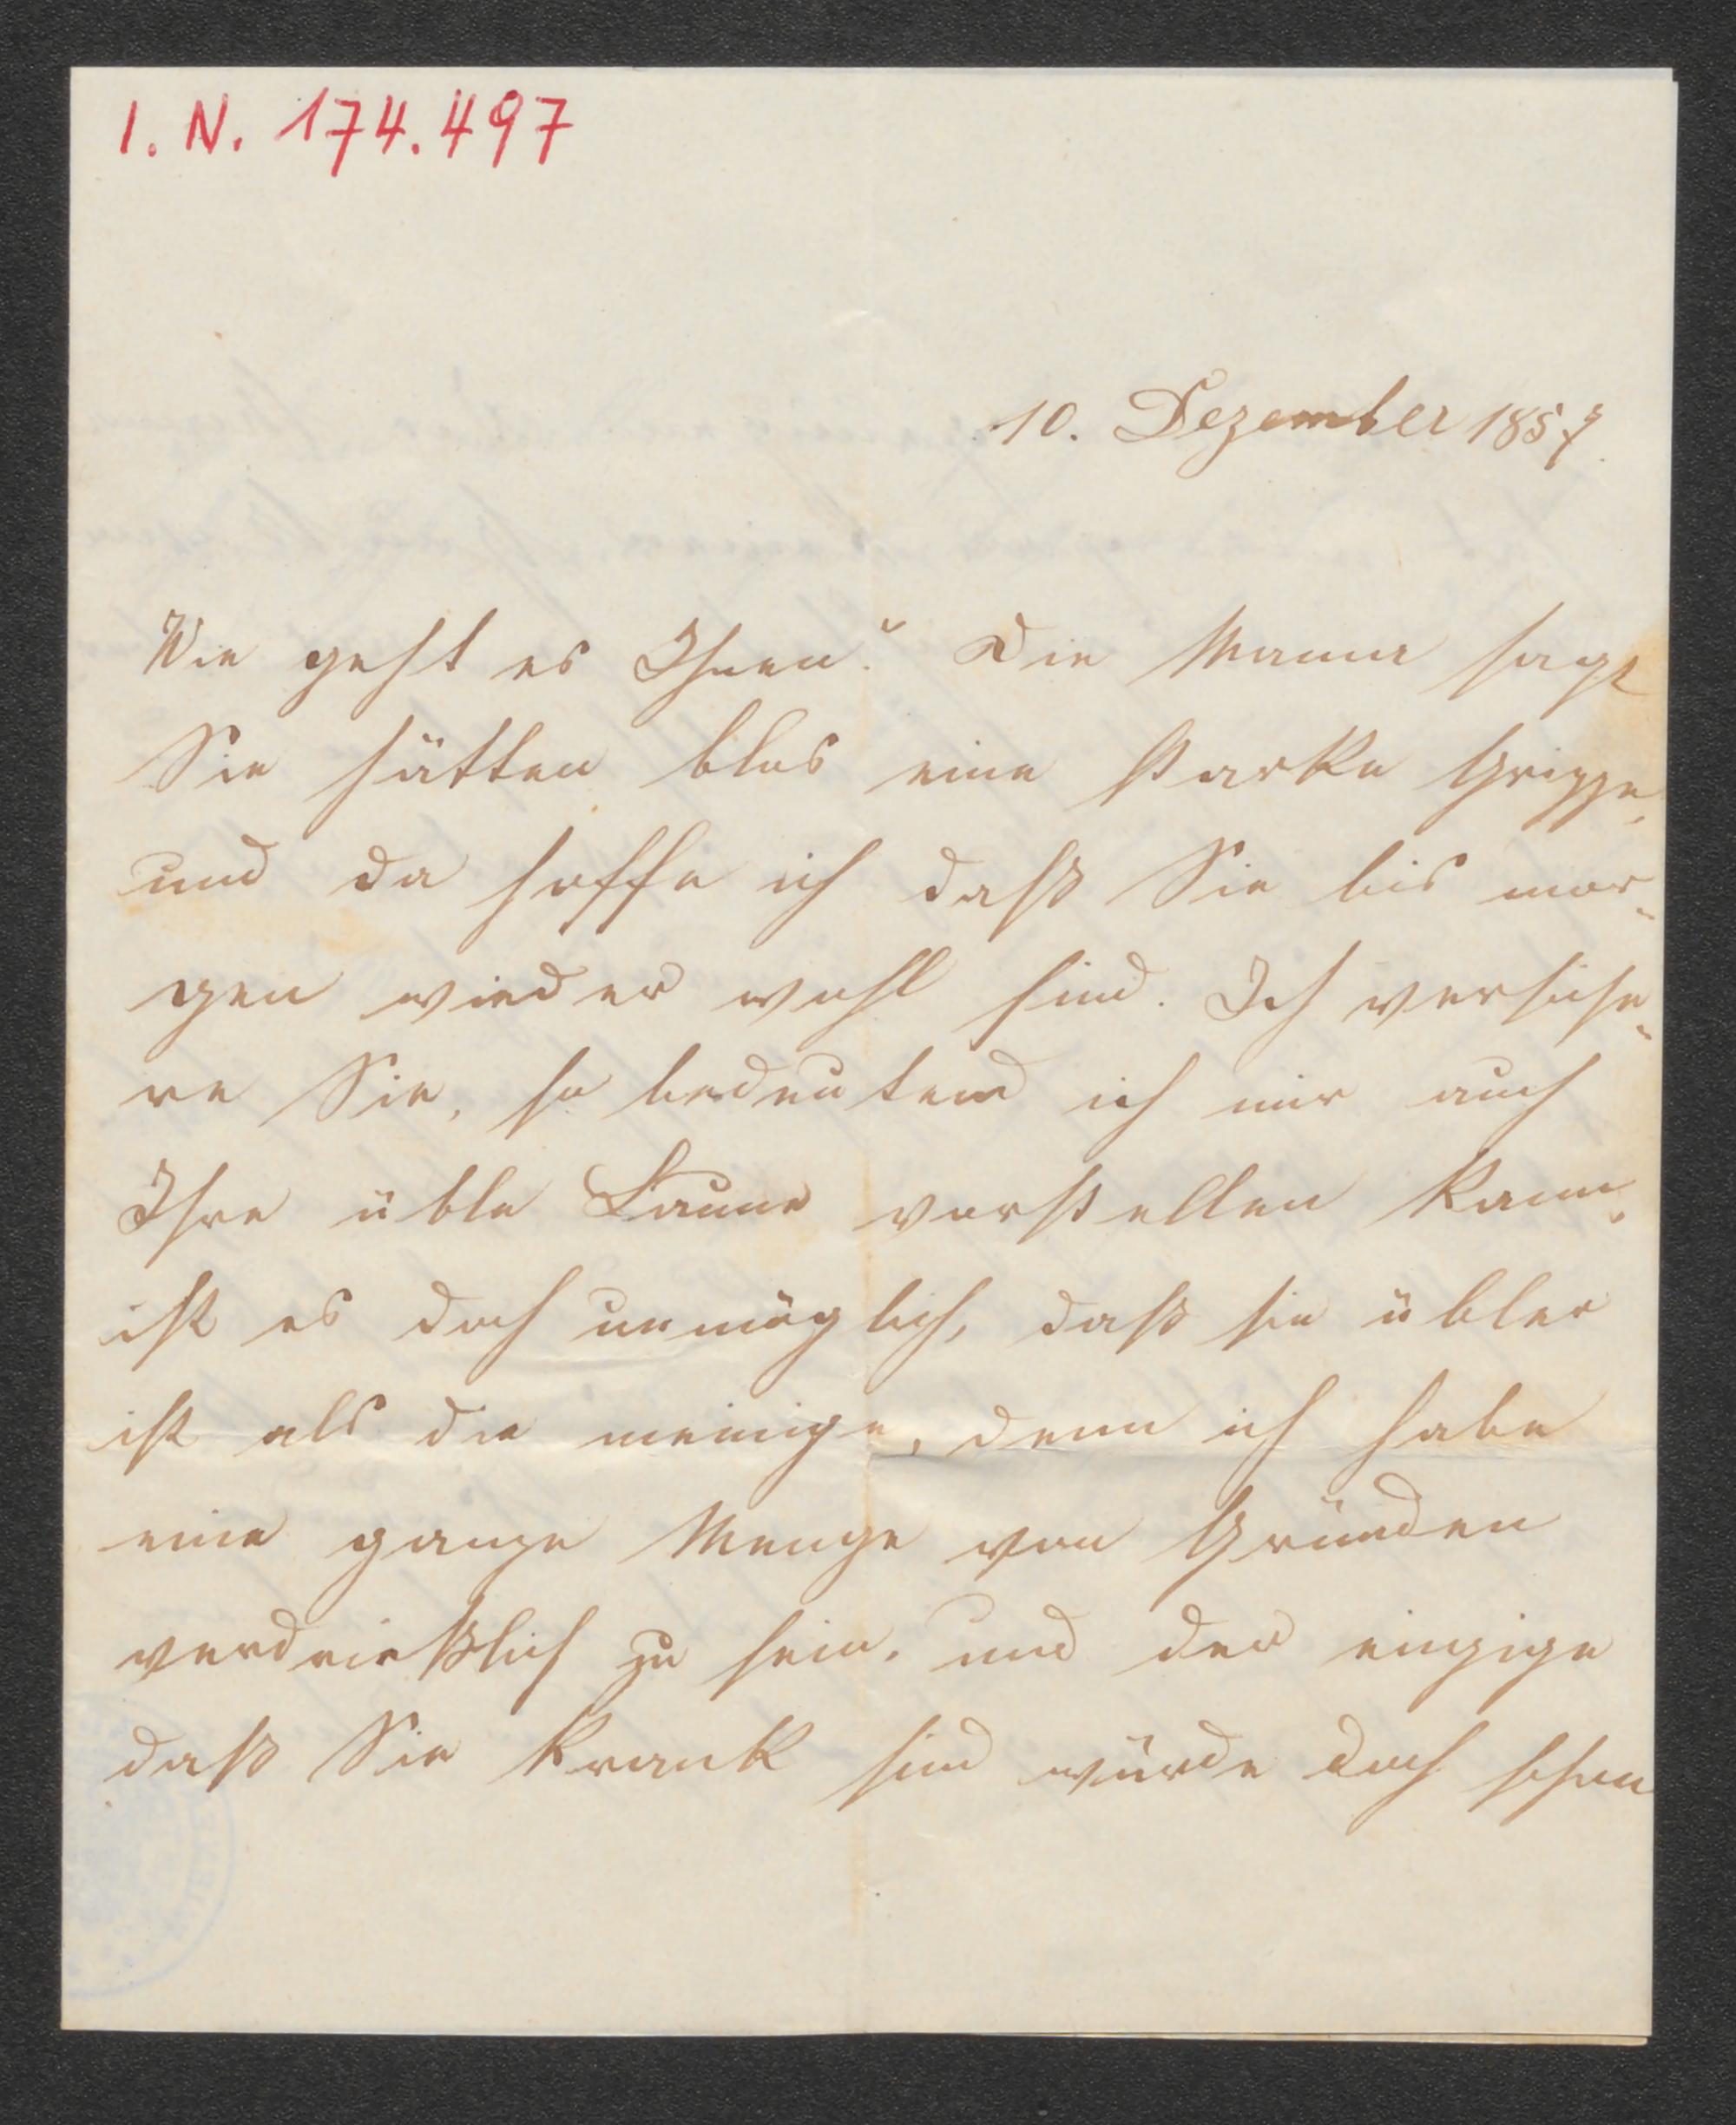 I. N. 174.497
10. Dezember 1857
Wie geht es Ihnen? Die Mama sagt
Sie hätten blos eine starke Grippe,
und da hoffe ich daß Sie bis mor-
gen wieder wohl sind. Ich versiche-
re Sie, so bedeutend ich mir auch
Ihre üble Laune vorstellen kann,
ist es doch unmöglich, daß sie übler
ist als die meinige, denn ich habe
eine ganze Menge von Gründen
verdrießlich zu sein, und der einzige
daß Sie krank sind würde doch schon